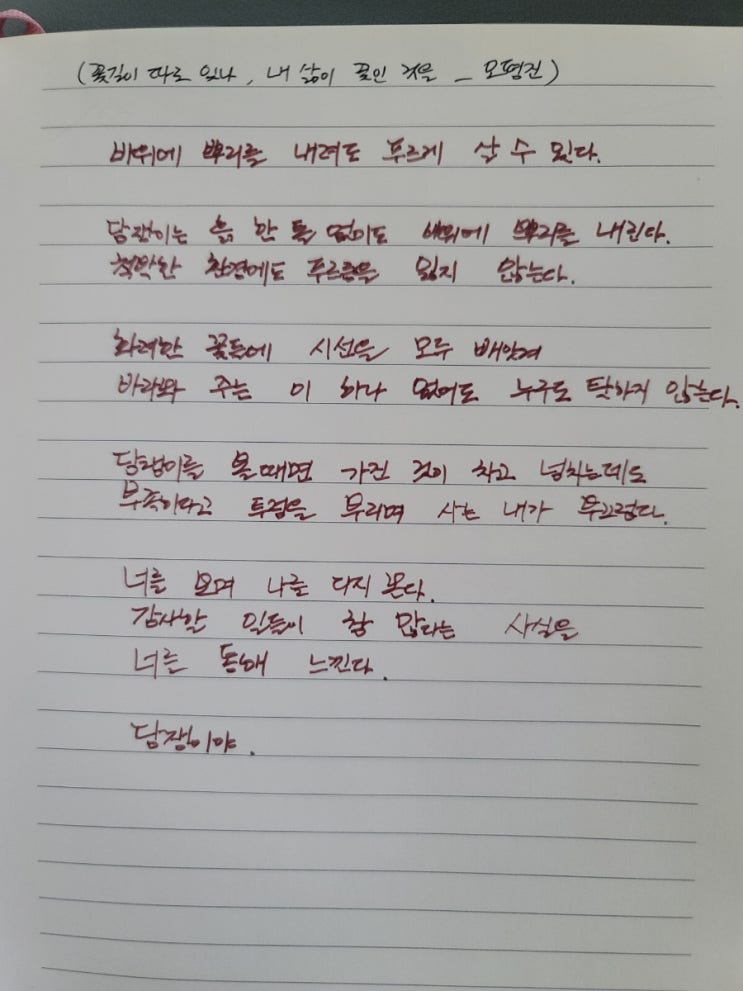 (꽃길이 따로 있나, 내 삶이 꽃인 것을 _ 오평진)
바위에 뿌리를 내려도 푸르게 살 수 있다.
담쟁이는 흙 한 톨 없이도 바위에 뿌리를 내린다.
척박한 환경에도 푸르름을 잃지 않는다.
화려한 꽃들에 시선을 모두 빼앗겨
바라봐 주는 이 하나 없어도 누구도 탓하지 않는다.
담쟁이를 볼때면 가진 것이 차고 넘치는데도
부족하다고 투정을 부리며 사는 내가 부끄럽다.
너를 보며 나를 다지 본다.
감사할 일들이 참 많다는 사실을
너를 통해 느낀다.
담쟁이야.